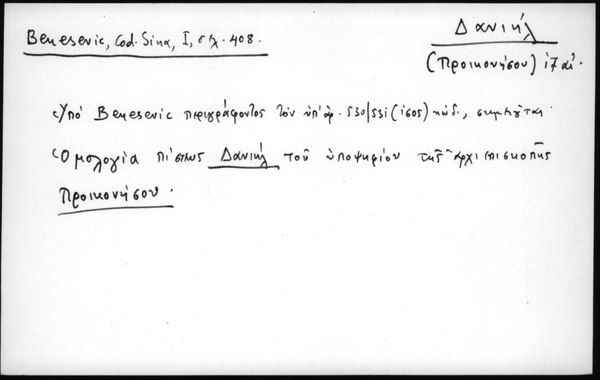 Benesevic, Cod. Sina, I, σελ. 408.
Δανιήλ
(Προικονήσου) ιζ' αἰ.
Ὑπὸ Benesevic περιγράφοντος τὸν ὑπ' ἀρ. 530/531 (ἰσος) κώδ., σημειοῦται
Ὁμολογία πίστεως Δανιήλ τοῦ ὑποψηφίου τῆς ἀρχιεπισκοπῆς
Προικονήσου.